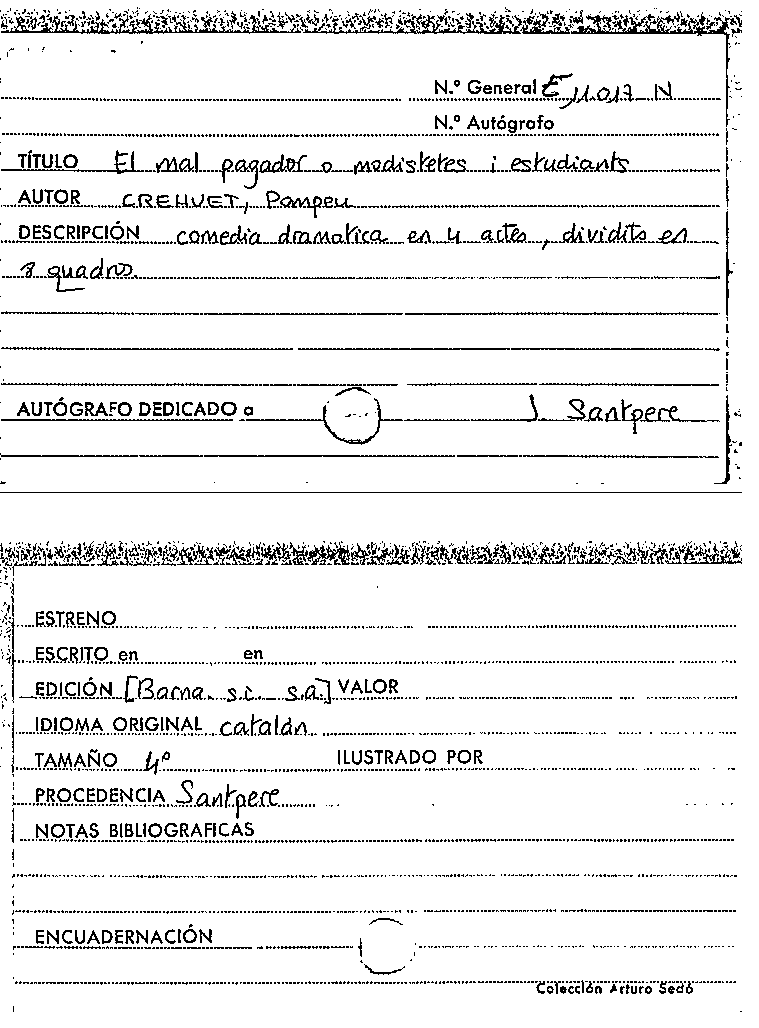 N.º General E 11.017 N
N.º Autógrafo
TÍTULO El mal pagador o modistetes i estudiants
AUTOR CREHUET, Pompeu
DESCRIPCIÓN comedia dramatica en 4 actes, dividits en
8 quadros.
AUTÓGRAFO DEDICADO a J. Santpere
ESTRENO
ESCRITO en en
EDICIÓN [Barna. s.i. s.a.] VALOR
IDIOMA ORIGINAL catalán
TAMAÑO 4º ILUSTRADO POR
PROCEDENCIA Santpere
NOTAS BIBLIOGRAFICAS
ENCUADERNACIÓN
Colección Arturo Sedó